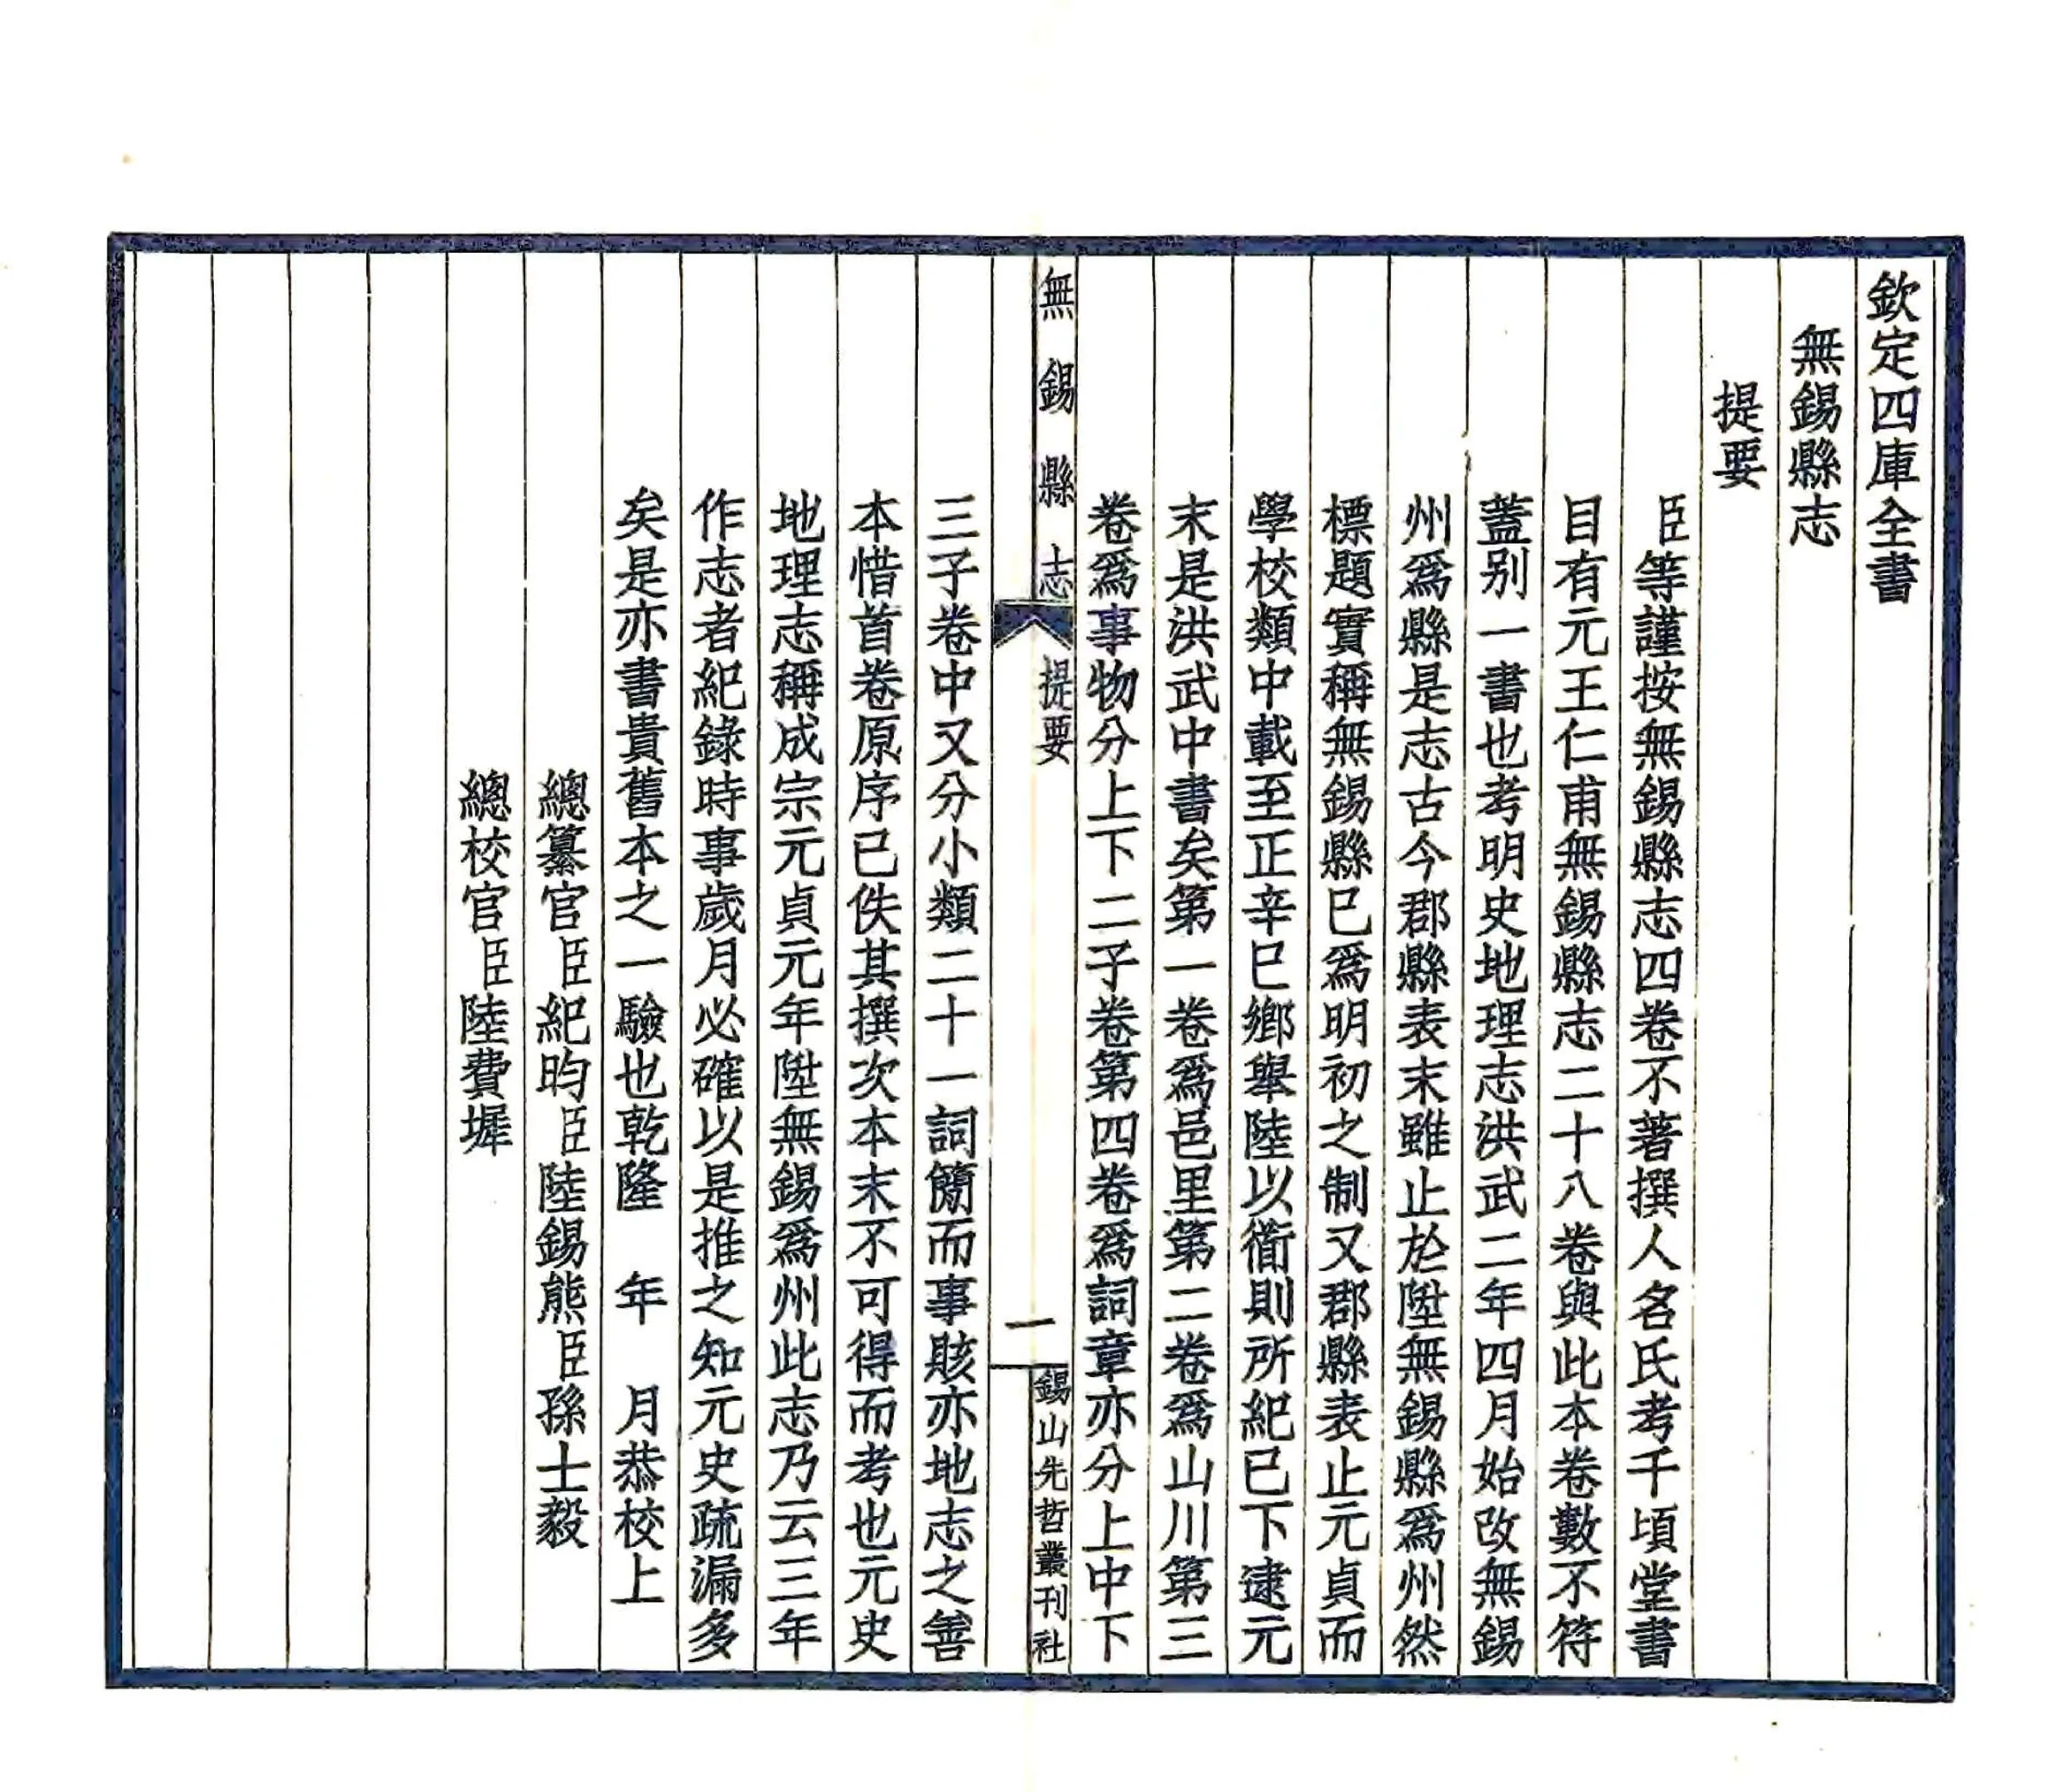 欽定四庫全書
無錫縣志
提要
臣等謹按無錫縣志四卷不著撰人名氏考千頃堂書
目有元王仁甫無錫縣志二十八卷與此本卷數不符
蓋别一書也考明史地理志洪武二年四月始改無錫
州爲縣是志古今郡縣表末雖止於陞無錫縣爲州然
標題實稱無錫縣已爲明初之制又郡縣表止元貞而
學校類中載至正辛巳鄉舉陸以衟則所紀已下逮元
末是洪武中書矣第一卷爲邑里第二卷爲山川第三
卷爲事物分上下二子卷第四卷爲詞章亦分上中下
無錫縣志
提要
一
錫山先哲叢刊社
三子卷中又分小類二十一詞簡而事賅亦地志之善
本惜首卷原序已佚其撰次本末不可得而考也元史
地理志稱成宗元貞元年陞無錫爲州此志乃云三年
作志者紀錄時事歲月必確以是推之知元史疏漏多
矣是亦書貴舊本之一驗也乾隆　年　月恭校上
總纂官臣紀昀臣陸錫熊臣孫士毅
總校官臣陸費墀